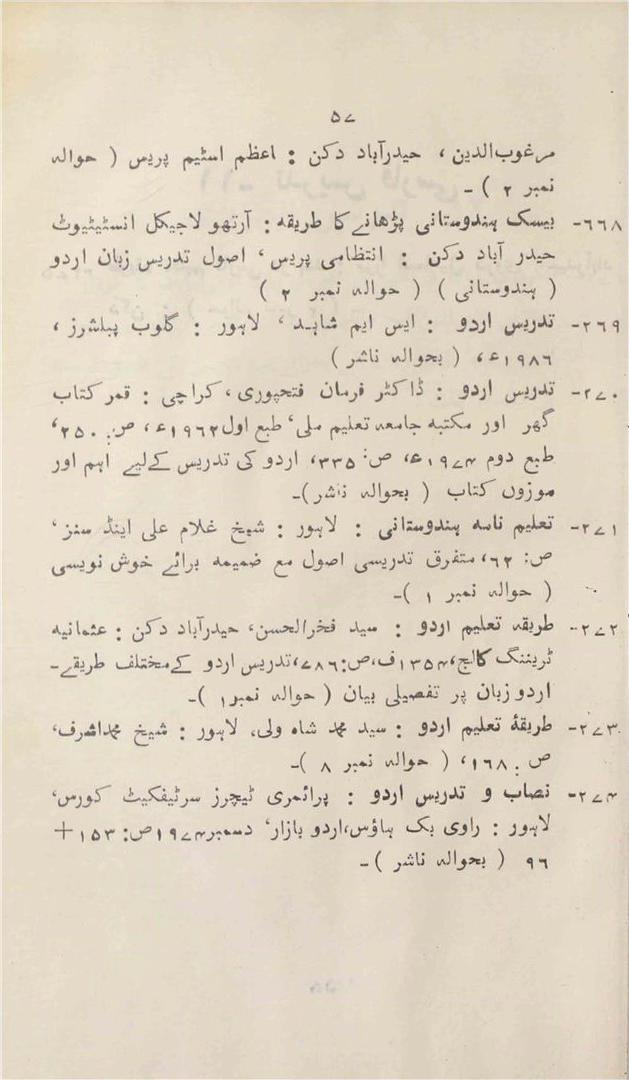 ۵۷
مرغوب الدین، حیدرآباد دکن : اعظم اسٹیم پریس ( حوالہ
نمبر ۲ )۔
۶۶۸۔ بیسک ہندوستانی پڑھانے کا طریقہ : آرتھو لاجیکل انسٹیٹیوٹ
حیدر آباد دکن : انتظامی پریس، اصول تدریس زبان اردو
( ہندوستانی ) ( حوالہ نمبر ۲ )
۲۶۹۔ تدریس اردو : ایس ایم شاہد، لاہور : گلوب پبلشرز ،
۱۹۸۶ء، ( بحوالہ ناشر )
۲۷۰۔ تدریس اردو : ڈاکٹر فرمان فتحپوری، کراچی : قمر کتاب
گھر اور مکتبہ جامعہ تعلیم ملی، طبع اول ۱۹۶۲ء، ص: ۲۵۰،
طبع دوم ۱۹۷۴ء، ص: ۳۳۵، اردو کی تدریس کےلیے اہم اور
موزوں کتاب ( بحوالہ ناشر)۔
۲۷۱۔ تعلیم نامہ ہندوستانی : لاہور : شیخ غلام علی اینڈ سنز،
ص: ۶۲، متفرق تدریسی اصول مع ضمیمہ برائے خوش نویسی
( حوالہ نمبر ۱ )۔
۲۷۲۔ طریقہ تعلیم اردو : سید فخرالحسن، حیدرآباد دکن : عثمانیہ
ٹریننگ کالج، ۱۳۵۴ف، ص: ۷۸۶، تدریس اردو کے مختلف طریقے۔
اردو زبان پر تفصیلی بیان ( حوالہ نمبر۱ )۔
۲۷۳۔ طریقۂ تعلیم اردو : سید محمد شاہ ولی، لاہور : شیخ محمد اشرف،
ص: ۱۶۸، ( حوالہ نمبر ۸ )۔
۲۷۴۔ نصاب و تدریس اردو : پرائمری ٹیچرز سرٹیفکیٹ کورس،
لاہور : راوی بک ہاؤس، اردو بازار، دسمبر ۱۹۷۴ ص: ۱۵۳ +
۹۶ ( بحوالہ ناشر )۔